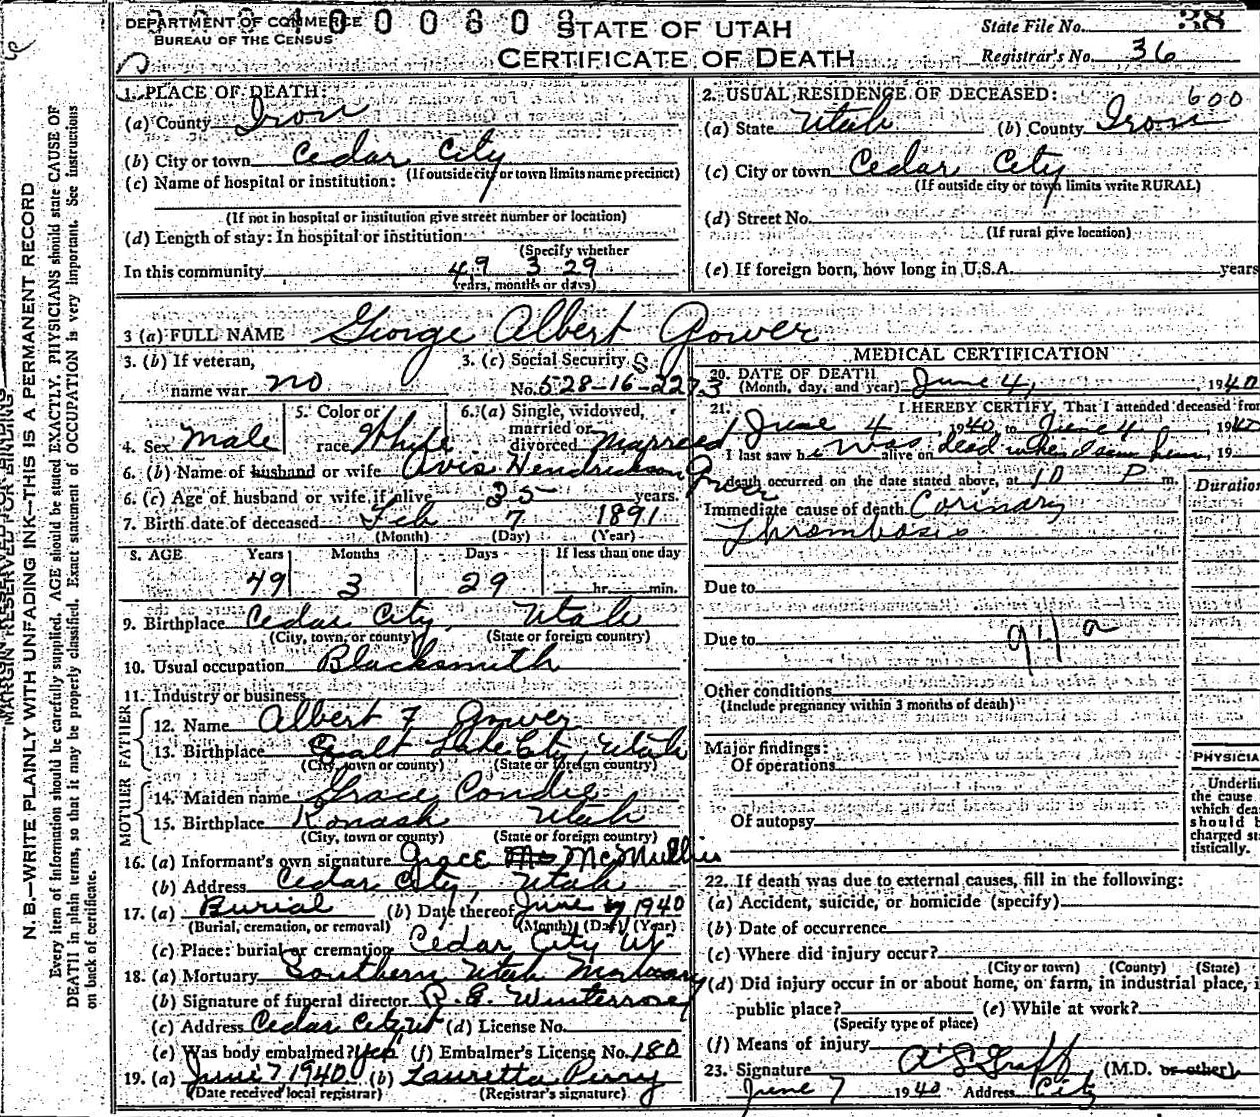 DEPARTMENT OF COMMERCE
BUREAU OF THE CENSUS
STATE OF UTAH
CERTIFICATE OF DEATH
State File No. 38
Registrar's No. 36
MARGIN RESERVED FOR BINDING
N. B.—WRITE PLAINLY WITH UNFADING INK—THIS IS A PERMANENT RECORD
Every item of information should be carefully supplied. AGE should be stated EXACTLY. PHYSICIANS should state CAUSE OF
DEATH in plain terms, so that it may be properly classified. Exact statement of OCCUPATION is very important. See instructions
on back of certificate.
1. PLACE OF DEATH:
(a) County Iron
(b) City or town Cedar City
(If outside city or town limits name precinct)
(c) Name of hospital or institution:
(If not in hospital or institution give street number or location)
(d) Length of stay: In hospital or institution
(Specify whether
In this community 49 3 29
years, months or days)
2. USUAL RESIDENCE OF DECEASED: 600
(a) State Utah (b) County Iron
(c) City or town Cedar City
(If outside city or town limits write RURAL)
(d) Street No.
(If rural give location)
(e) If foreign born, how long in U.S.A. years
3 (a) FULL NAME George Albert Gower
3. (b) If veteran,
name war no
3. (c) Social Security
No. 528-16-2273
4. Sex Male
5. Color or
race White
6. (a) Single, widowed,
married or
divorced married
6. (b) Name of husband or wife Avis Hendrickson Gower
6. (c) Age of husband or wife if alive 35 years.
7. Birth date of deceased Feb 7 1891
(Month) (Day) (Year)
8. AGE Years Months Days If less than one day
49 3 29 hr. min.
9. Birthplace Cedar City, Utah
(City, town, or county) (State or foreign country)
10. Usual occupation Blacksmith
11. Industry or business
FATHER
12. Name Albert F Gower
13. Birthplace Salt Lake City, Utah
(City, town or county) (State or foreign country)
MOTHER
14. Maiden name Grace Condie
15. Birthplace Konash Utah
(City, town or county) (State or foreign country)
16. (a) Informant's own signature Grace McMullin
(b) Address Cedar City, Utah
17. (a) Burial (b) Date thereof June 7, 1940
(Burial, cremation, or removal) (Month) (Day) (Year)
(c) Place: burial or cremation Cedar City Ut
18. (a) Mortuary Southern Utah Mortuary
(b) Signature of funeral director
(c) Address Cedar City Ut (d) License No.
(e) Was body embalmed? Yes (f) Embalmer's License No. 180
19. (a) June 7 1940 (b) Lauretta Perry
(Date received local registrar) (Registrar's signature)
MEDICAL CERTIFICATION
20. DATE OF DEATH
(Month, day, and year) June 4, 1940
21. I HEREBY CERTIFY, That I attended deceased from
June 4 1940 to June 4 1940
I last saw h alive on was dead when I saw him, 19
death occurred on the date stated above, at 10 P m.
Immediate cause of death Corinary
Thrombosis
Duration
Due to
Due to 94a
Other conditions
(Include pregnancy within 3 months of death)
Major findings:
Of operations
Of autopsy
PHYSICIA
Underli
the cause
which dea
should b
charged st
tistically.
22. If death was due to external causes, fill in the following:
(a) Accident, suicide, or homicide (specify)
(b) Date of occurrence
(c) Where did injury occur?
(City or town) (County) (State)
(d) Did injury occur in or about home, on farm, in industrial place, i
public place? (e) While at work?
(Specify type of place)
(f) Means of injury
23. Signature A S Graff (M.D. or other)
June 7 1940 Address City